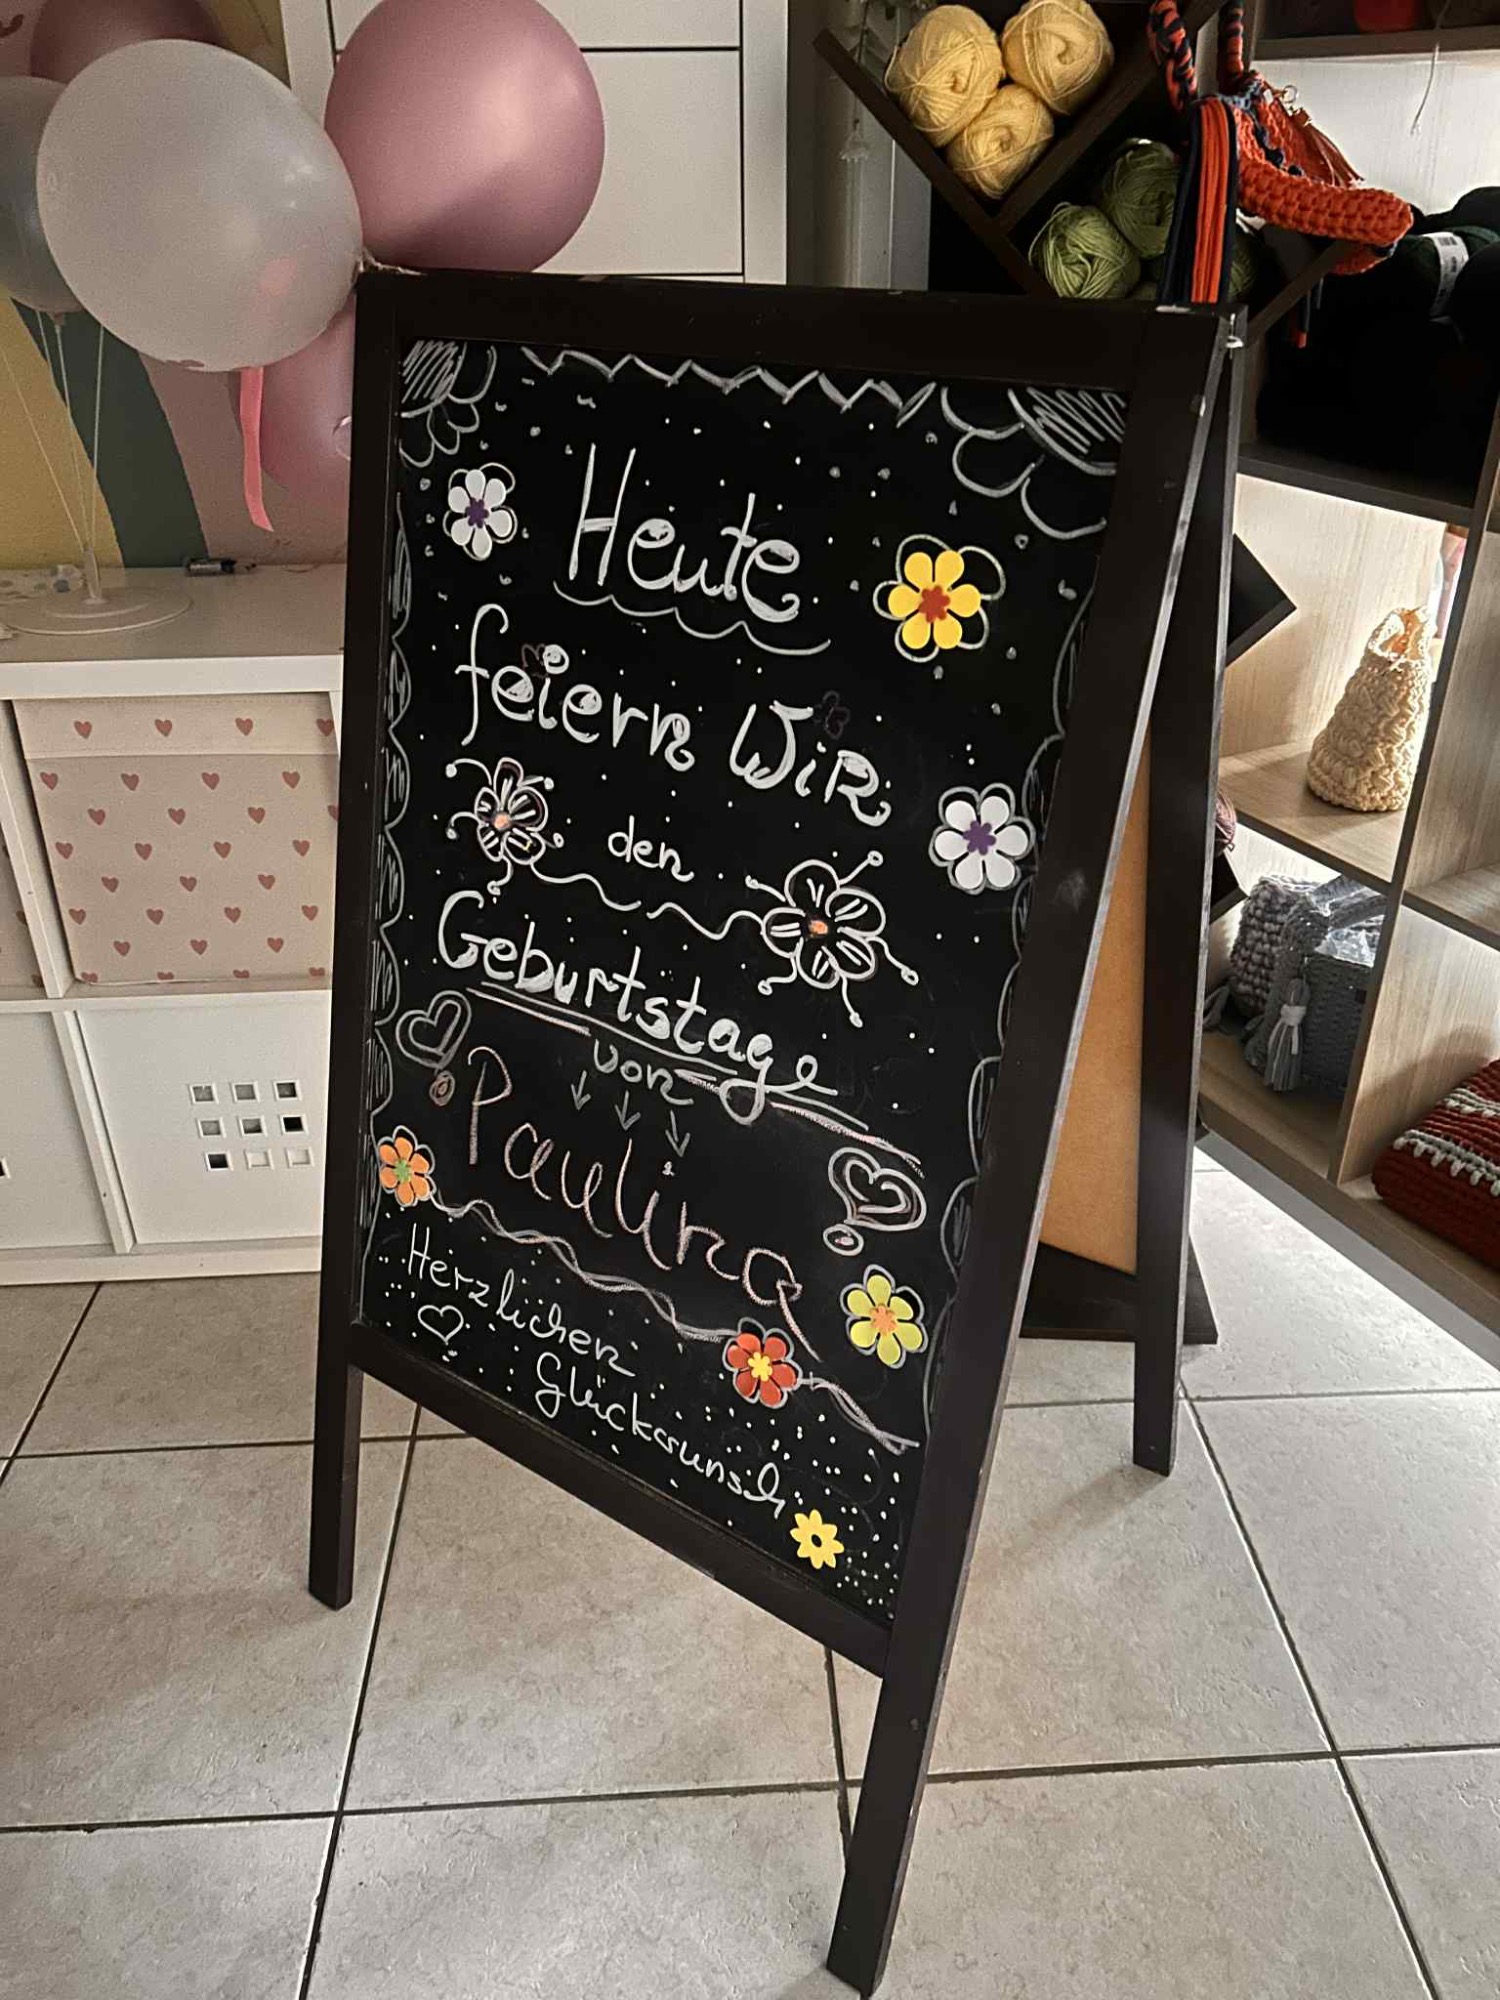 Heute
feiern Wir
den
Geburtstage
von
Paulina
Herzlichen
Glückwunsch